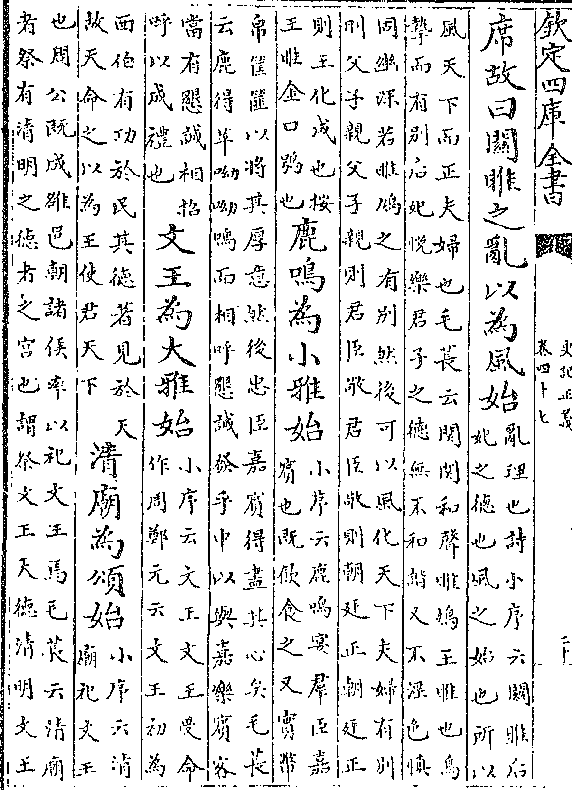 欽定四庫全書
史記正義
卷四十七
二十
席故曰關雎之亂以為風始
亂理也詩小序云關雎后
妃之德也風之始也所以
風天下而正夫婦也毛萇云関関和聲雎鳩王雎也鳥
摯而有別后妃悅樂君子之德無不和諧又不淫色慎
同幽深若雎鳩之有別然後可以風化天下夫婦有別
則父子親父子親則君臣敬君臣敬則朝廷正朝廷正
則王化成也按
王雎金口鶚也
鹿鳴為小雅始
小序云鹿鳴宴羣臣嘉
賓也既飲食之又實幣
帛筐篚以將其厚意然後忠臣嘉賓得盡其心矣毛萇
云鹿得苹呦呦鳴而相呼懇誠發乎中以興嘉樂賓客
當有懇誠相招
呼以成禮也
文王為大雅始
小序云文王文王受命
作周鄭元云文王初為
西伯有功於民其德著見於天
故天命之以為王使君天下
清廟為頌始
小序云清
廟祀文王
也周公既成雒邑朝諸侯率以祀文王焉毛萇云清廟
者祭有清明之德者之宮也謂祭文王天德清明文王